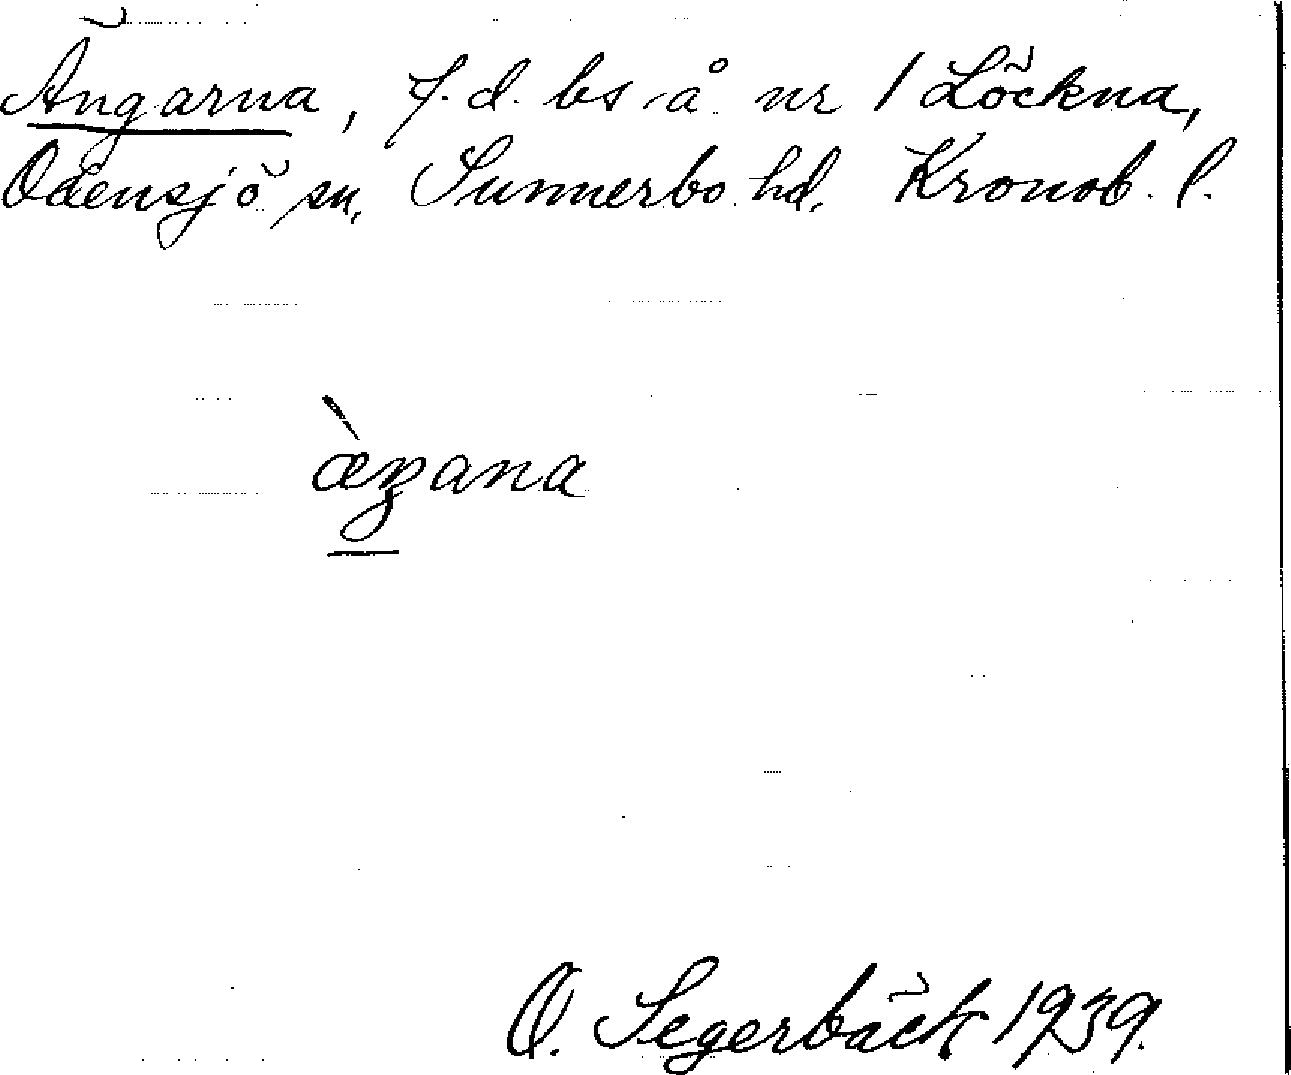 Ängarna, f.d. bs å nr 1 Löckna,
Odensjö sn, Sunnerbo hd, Kronob. l.
æ̀ŋana
O. Segerbäck 1939.